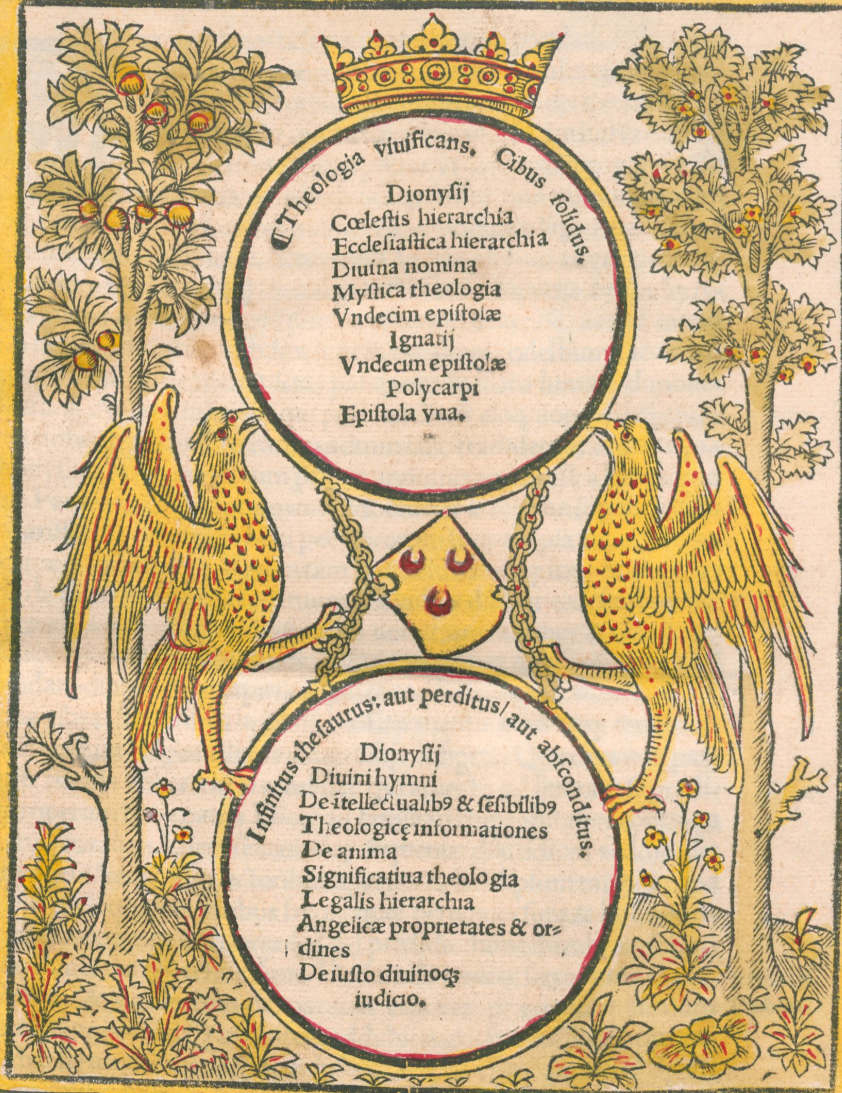 ¶Theologia viuificans. Cibus ſolidus.
Dionyſij
Cœleſtis hierarchia
Eccleſiaſtica hierarchia
Diuina nomina
Myſtica theologia
Vndecim epiſtolæ
Ignatij
Vndecim epiſtolæ
Polycarpi
Epiſtola vna.
Infinitus theſaurus: aut perditus/ aut abſconditus.
Dionyſij
Diuini hymni
De ītellectualibꝰ & ſēſibilibꝰ
Theologicę informationes
De anima
Significatiua theologia
Legalis hierarchia
Angelicæ proprietates & or⸗
dines
De iuſto diuinoqꝫ
iudicio.